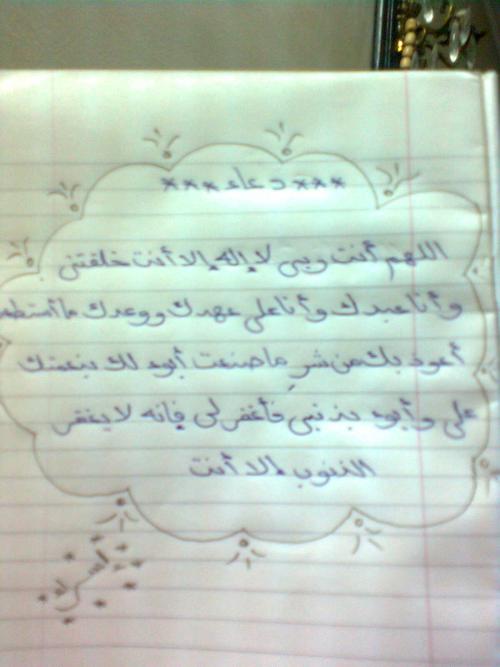 *** دعاء ***
اللهم أنت ربي لا إله إلا أنت خلقتني
وأنا عبدك وأنا على عهدك ووعدك ما أستطع
أعوذ بك من شر ما صنعت أبوء لك بنعمتك
علي وأبوء بذنبي فأغفر لي فإنه لا يغفر
الذنوب إلا أنت